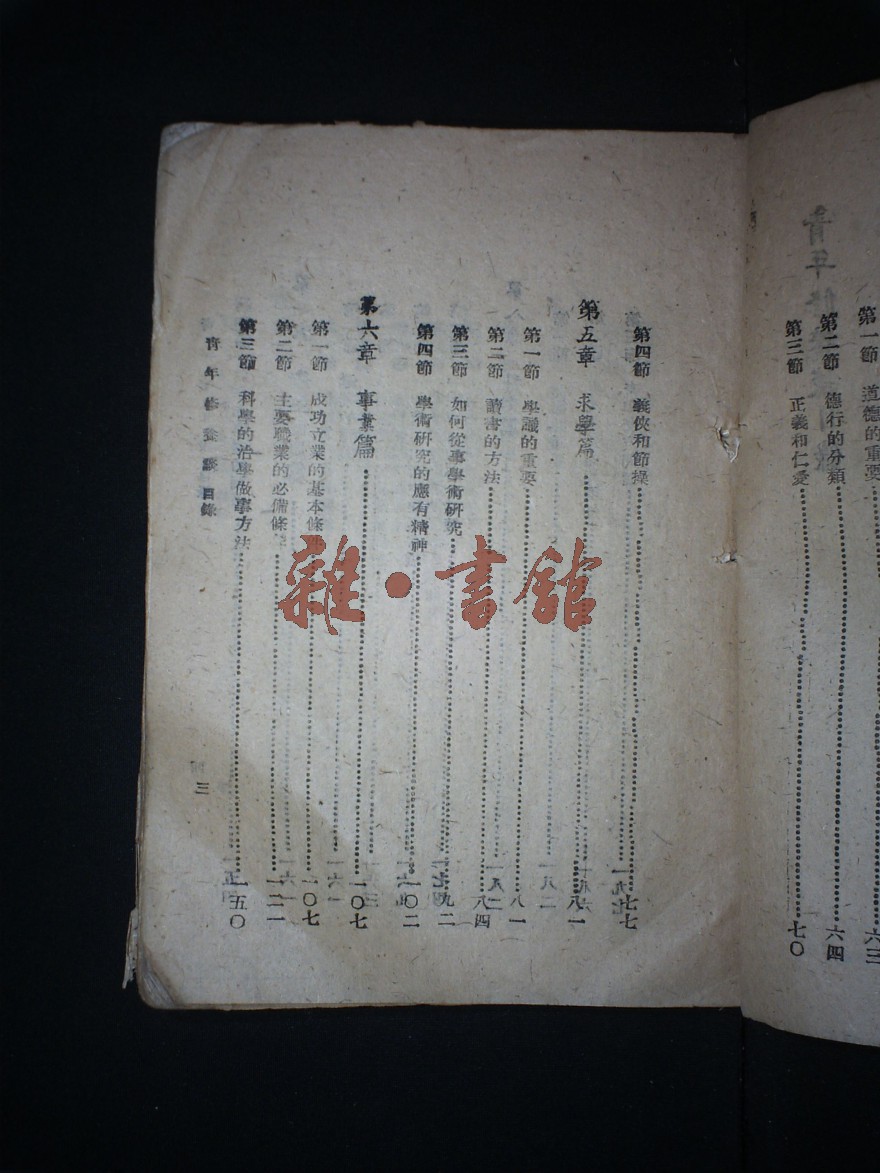 第一節 道德的重要 六三
第二節 德行的分類 六四
第三節 正義和仁愛 七〇
第四節 義俠和節操 七七
第五章 求學篇 八一
第一節 學識的重要 八一
第二節 讀書的方法 八四
第三節 如何從事學術研究 九二
第四節 學術研究的應有精神 一〇二
第六章 事業篇 一〇七
第一節 成功立業的基本條件 一〇七
第二節 主要職業的必備條件 一二一
第三節 科學的治學做事方法 一五〇
青年修養談 目錄 三
雜·書館